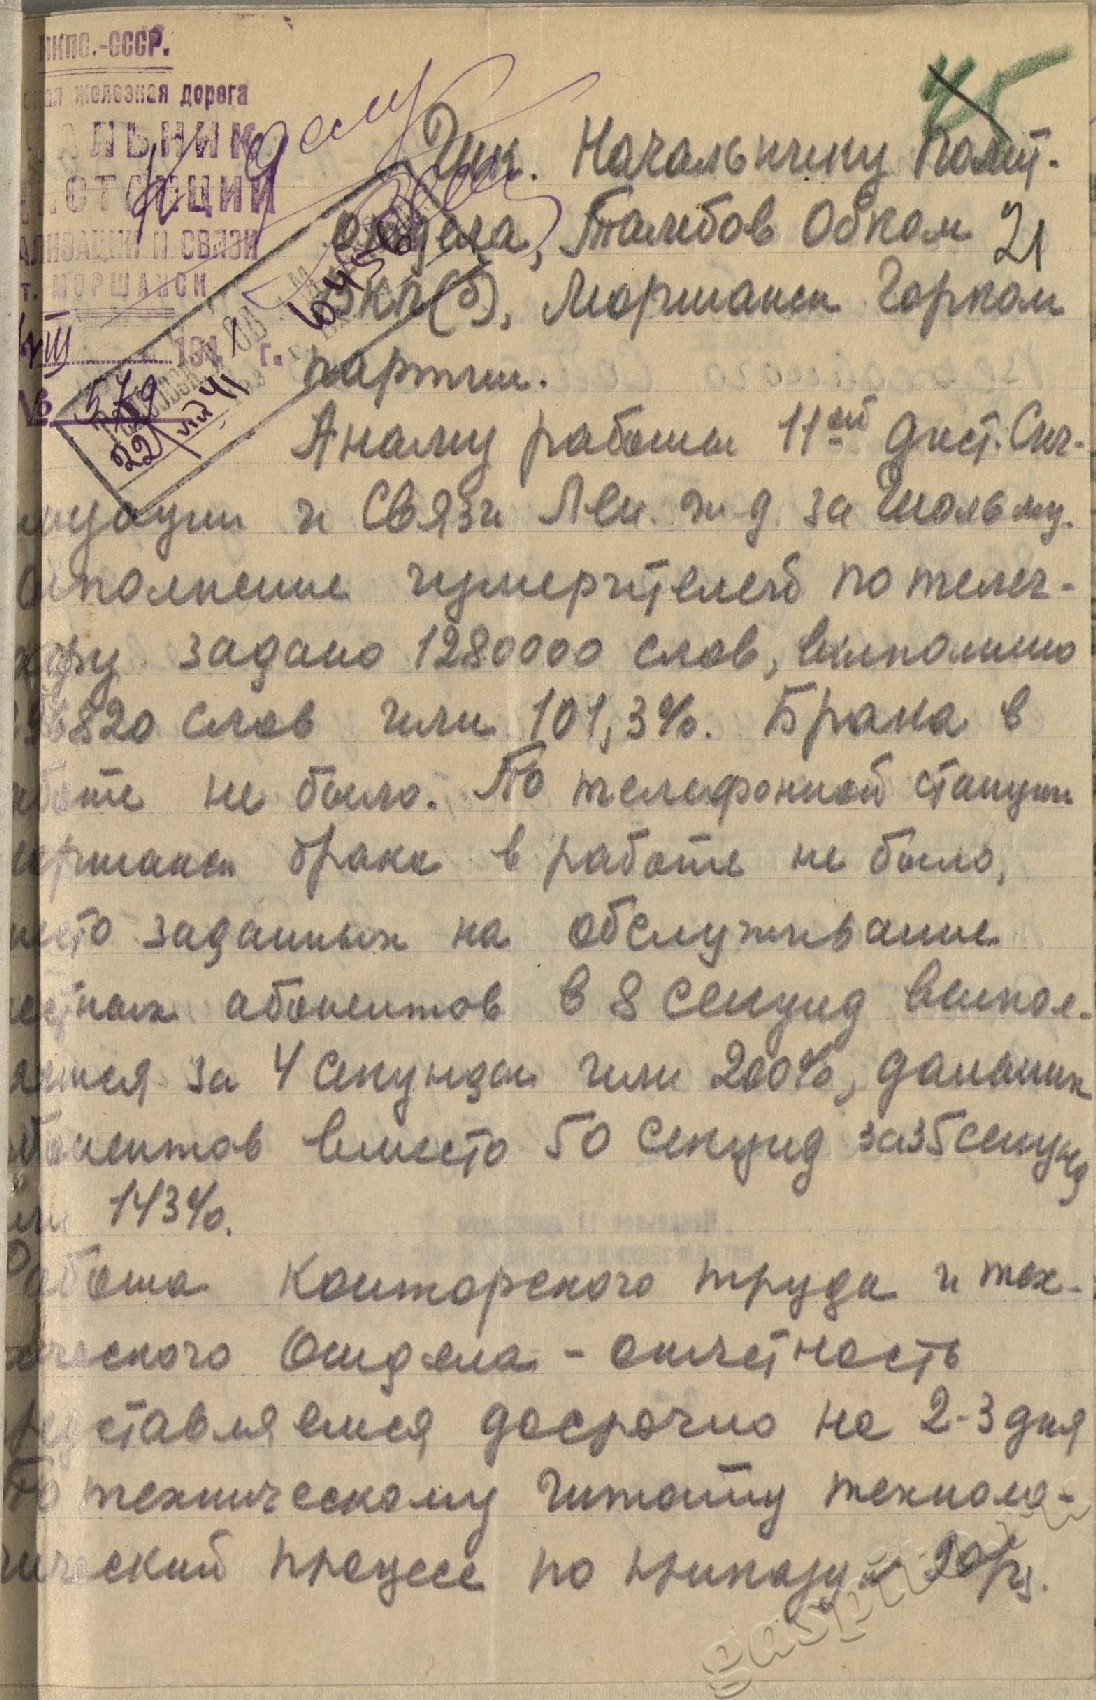 НКПС.-СССР.
ская железная дорога
АЛЬНИК
СТАНЦИИ
АЛИЗАЦИИ И СВЯЗИ
ст. МОРШАНСК
VIII 1941 г.
№ 579
22/VIII 41
45
21
Нач. Начальнику Полит-
отдела, Тамбов Обком
ВКП(б), Моршанск Горком
партии.
Анализ работы 11ой дист. Сиг-
нализации и Связи Лен. ж.д. за Июль м-ц.
ыполнение измерителей по телег-
рафу задано 1280000 слов, выполнено
296820 слов или 101,3%. Брака в
аботе не было. По телефонной станции
оршанск брака в работе не было,
место заданных на обслуживание
естных абонентов в 8 секунд выпол-
яется за 4 секунды или 200%, дальних
бонентов вместо 50 секунд за 35 секунд
или 143%.
Работа Конторского труда и тех-
ического Отдела - отчетность
редставляется досрочно на 2-3 дня
По техническому Читоту техноло-
гический процесс по приказу
gaspito.ru